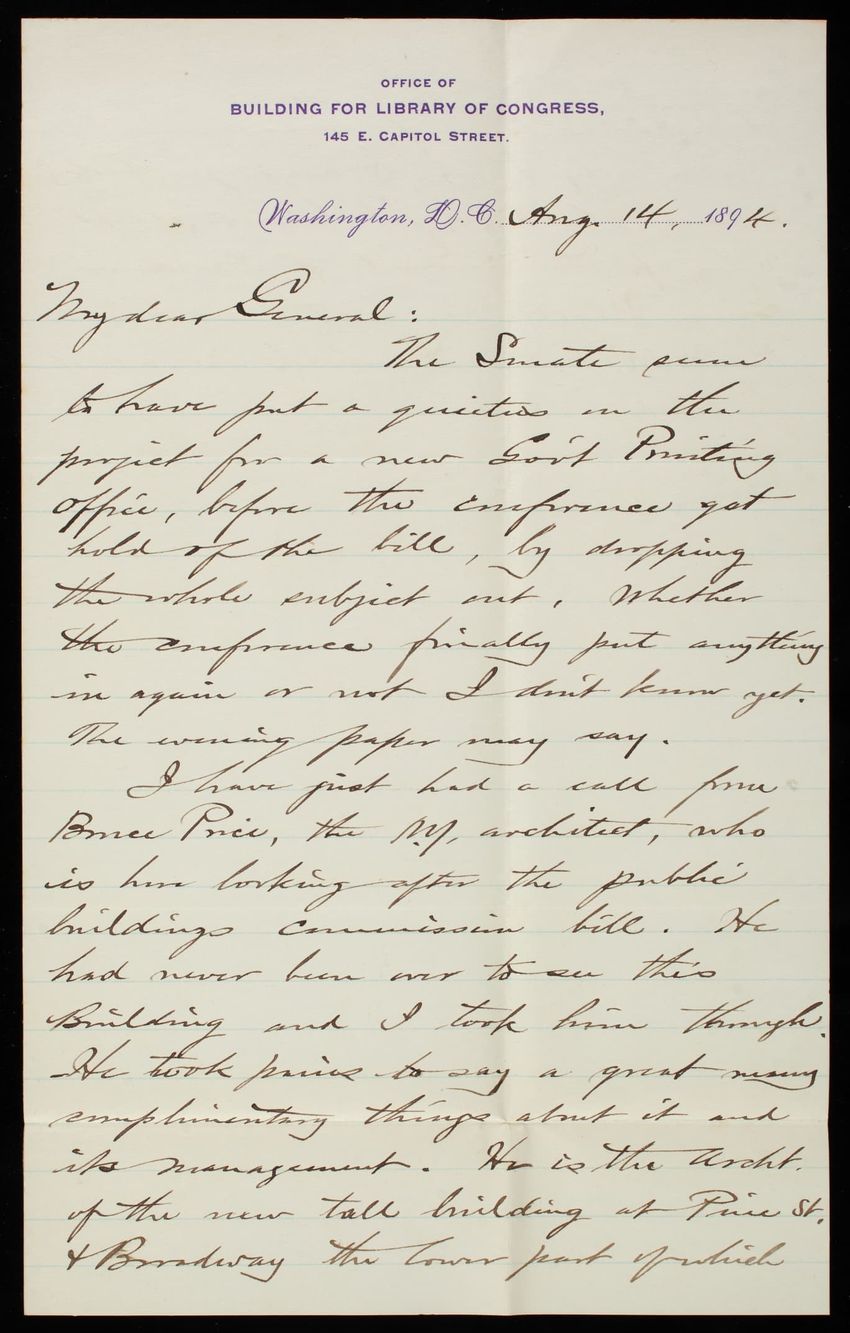 OFFICE OF
BUILDING FOR LIBRARY OF CONGRESS,
145 E. CAPITOL STREET.
Washington, D.C. Aug. 14, 1894.
My dear General:
The Senate seem
to have put a quietus on the
project for a new Gov't Printing
Office, before the conference got
hold of the bill, by dropping
the whole subject out. Whether
the conference finally put anything
in again or not I don't know yet.
The evening paper may say.
I have just had a call from
Bruce Price, the N.Y. architect, who
is here looking after the public
buildings commission bill. He
had never been over to see this
Building and I took him through.
He took pains to say a great many
complimentary things about it and
its management. He is the Archt.
of the new tall building at Pine St.
& Broadway the lower part of which